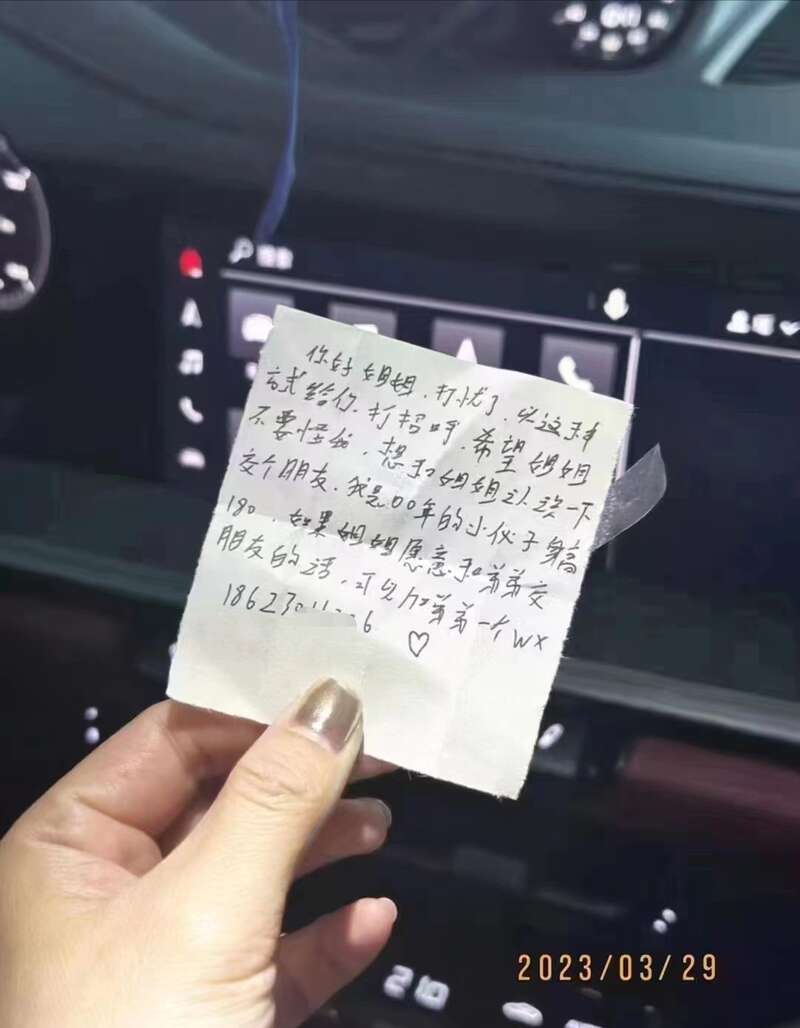 你好姐姐,打扰了,以这种
方式给你打招呼,希望姐姐
不要怪我,想和姐姐认识一下
交个朋友,我是00年的小伙子身高
180,如果姐姐愿意和弟弟交
朋友的话,可以加弟弟一个WX
18623 6 ♡
210
2023/03/29